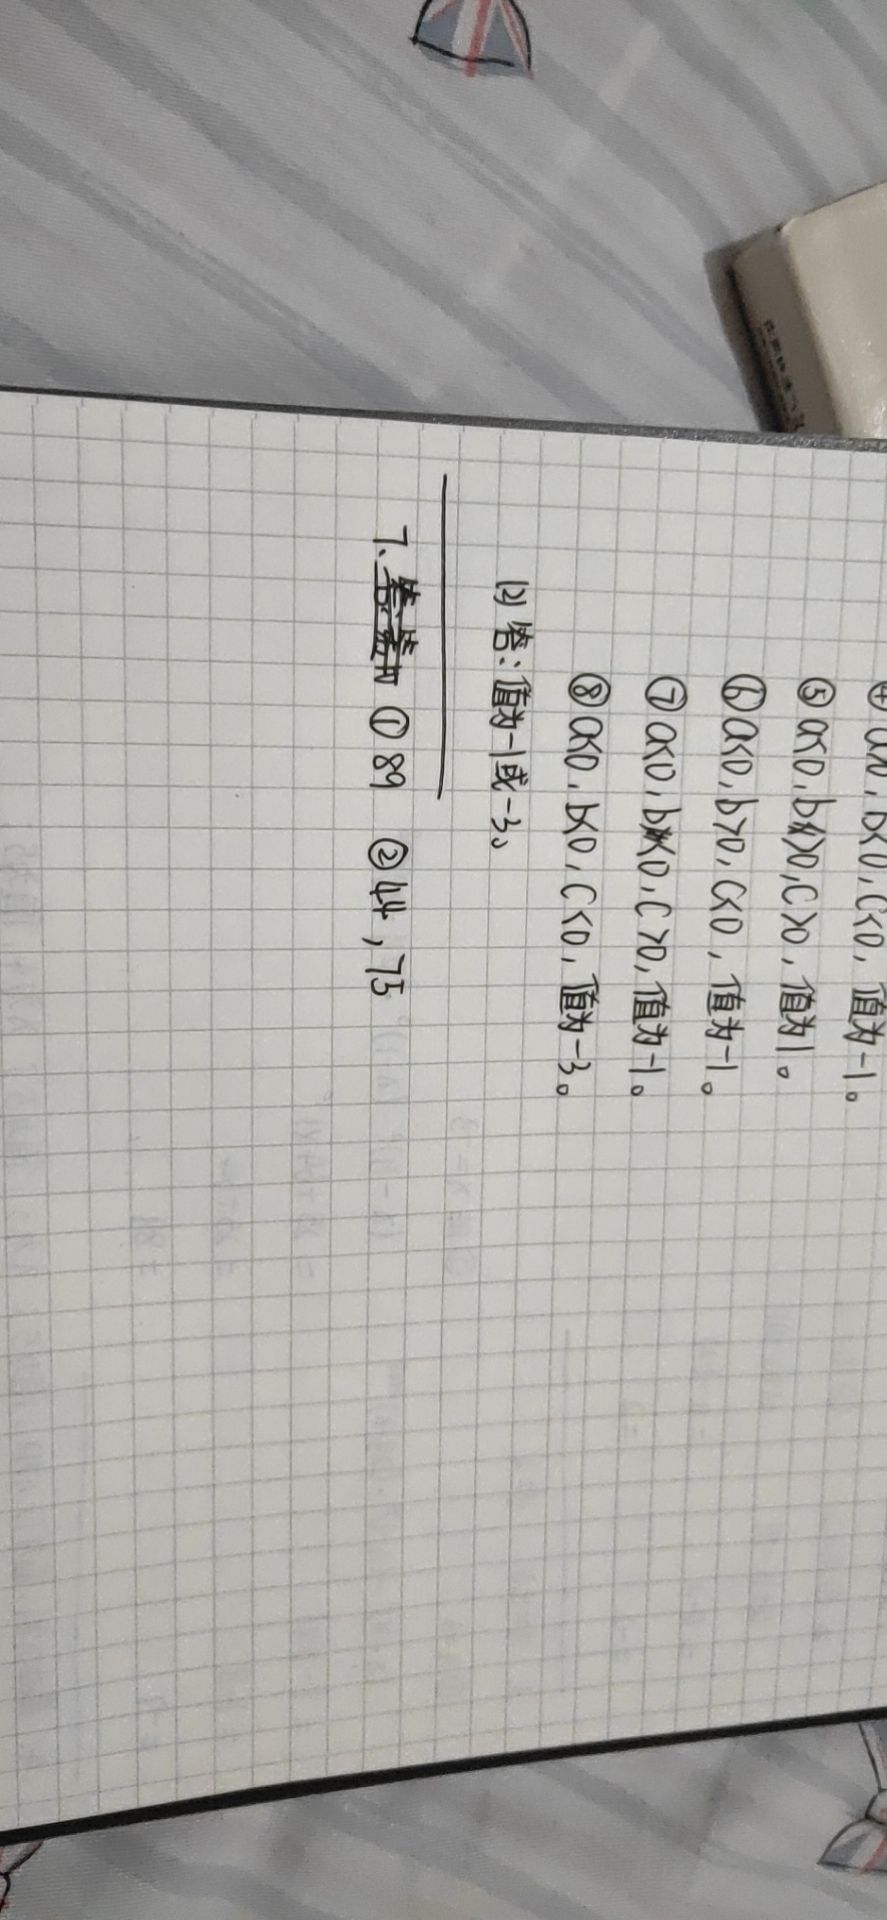 ④ a>0, b<0, c<0, 值为-1。
⑤ a<0, b>0, c>0, 值为1。
⑥ a<0, b>0, c<0, 值为-1。
⑦ a<0, b<0, c>0, 值为-1。
⑧ a<0, b<0, c<0, 值为-3。
(2) 答：值为-1或-3。
7、 ① 89 ② 44, 75